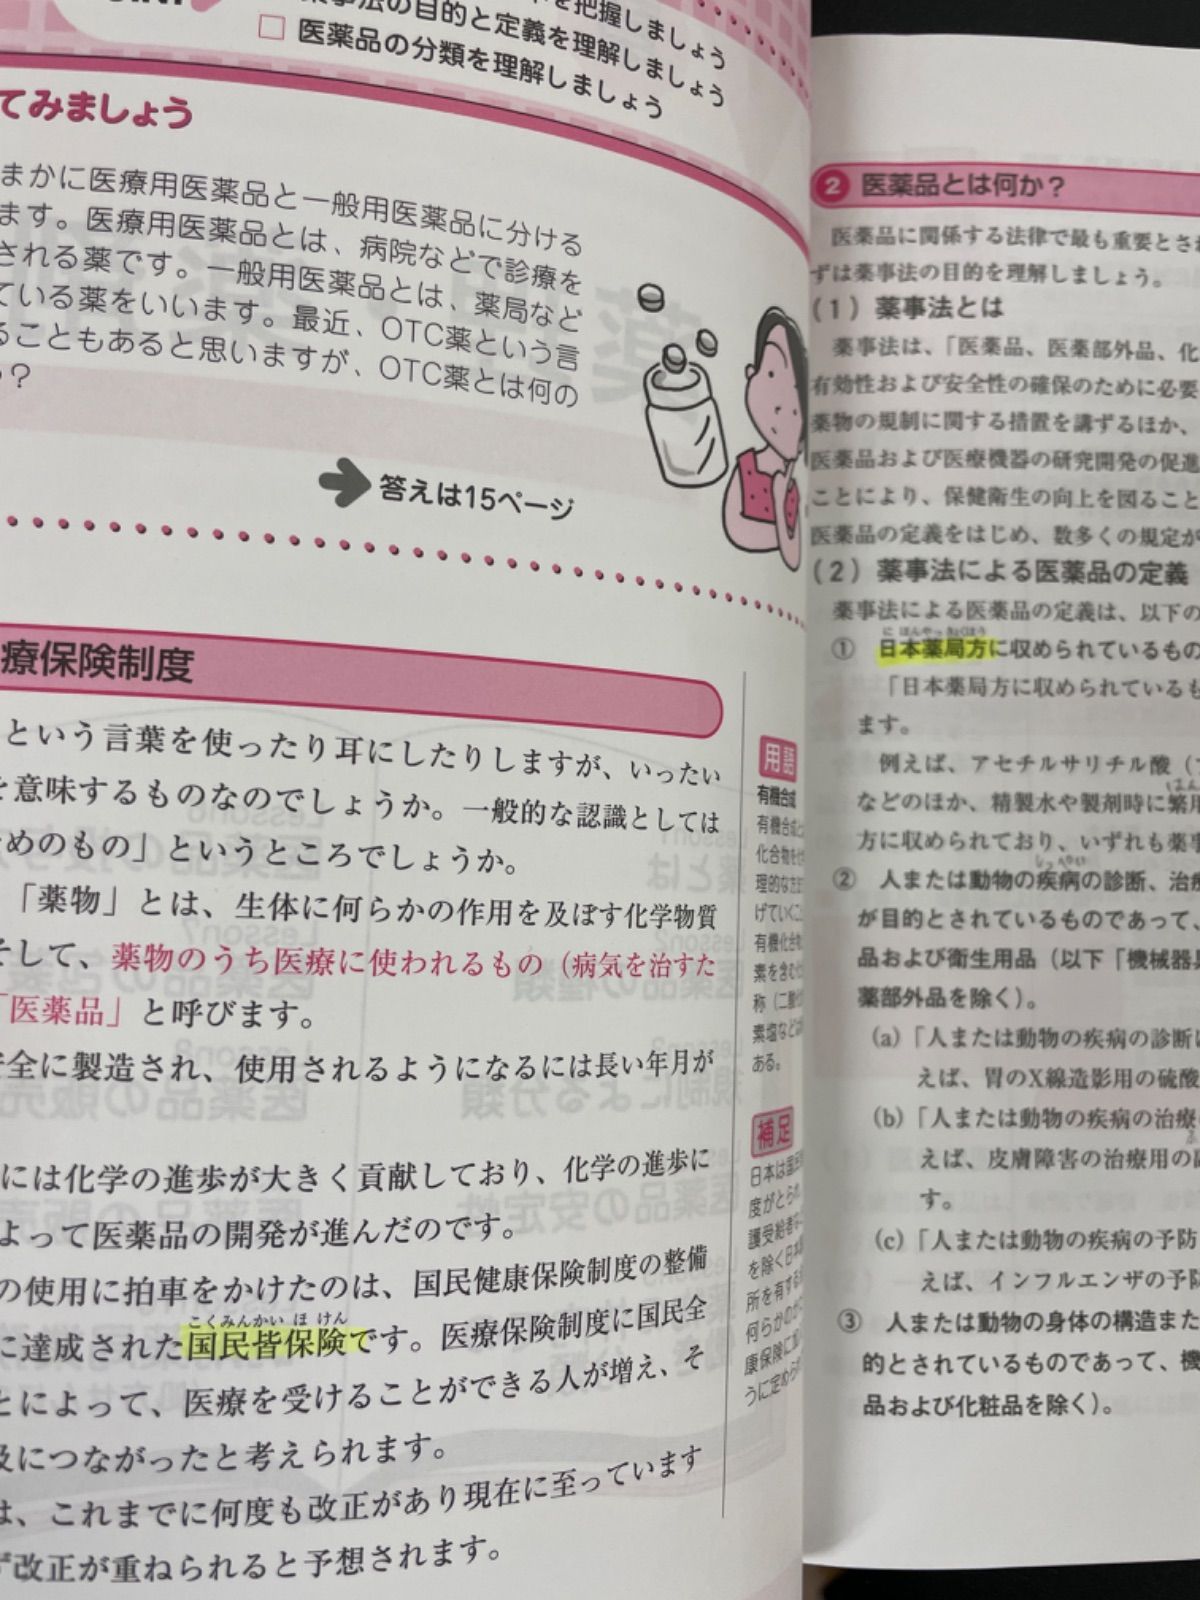 を把握しましょう
薬事法の目的と定義を理解しましょう
□ 医薬品の分類を理解しましょう
てみましょう
まかに医療用医薬品と一般用医薬品に分ける
ます。医療用医薬品とは、病院などで診療を
される薬です。一般用医薬品とは、薬局など
ている薬をいいます。最近、OTC薬という言
ることもあると思いますが、OTC薬とは何の
?
答えは15ページ
療保険制度
という言葉を使ったり耳にしたりしますが、いったい
を意味するものなのでしょうか。一般的な認識としては
ためのもの」というところでしょうか。
「薬物」とは、生体に何らかの作用を及ぼす化学物質
そして、薬物のうち医療に使われるもの（病気を治すた
「医薬品」と呼びます。
安全に製造され、使用されるようになるには長い年月が
には化学の進歩が大きく貢献しており、化学の進歩に
よって医薬品の開発が進んだのです。
の使用に拍車をかけたのは、国民健康保険制度の整備
こくみんかいほけん
に達成された国民皆保険です。医療保険制度に国民全
とによって、医療を受けることができる人が増え、そ
及につながったと考えられます。
は、これまでに何度も改正があり現在に至っています
ず改正が重ねられると予想されます。
用語
有機合成
有機合成と
化合物を
理的な方法
げていくこ
有機化合物
素を含む
称（二酸化
素塩などは
ある。
補足
日本は国民
度がとられ
護受給者な
を除く日本
所を有する
何らかの
康保険に加
うに定められ
2 医薬品とは何か？
医薬品に関係する法律で最も重要とされ
ずは薬事法の目的を理解しましょう。
（1）薬事法とは
薬事法は、「医薬品、医薬部外品、化
有効性および安全性の確保のために必要
薬物の規制に関する措置を講ずるほか、
医薬品および医療機器の研究開発の促進
ことにより、保健衛生の向上を図ること
医薬品の定義をはじめ、数多くの規定が
（2）薬事法による医薬品の定義
薬事法による医薬品の定義は、以下の
にほんやっきょくほう
① 日本薬局方に収められているもの
「日本薬局方に収められているも
ます。
例えば、アセチルサリチル酸（
などのほか、精製水や製剤時に繁用
方に収められており、いずれも薬事
しっぺい
② 人または動物の疾病の診断、治療
が目的とされているものであって、
品および衛生用品（以下「機械器具
薬部外品を除く）。
(a)「人または動物の疾病の診断に
えば、胃のX線造影用の硫酸
(b)「人または動物の疾病の治療
えば、皮膚障害の治療用の
す。
(c)「人または動物の疾病の予防
えば、インフルエンザの予防
③ 人または動物の身体の構造また
的とされているものであって、機
品および化粧品を除く）。